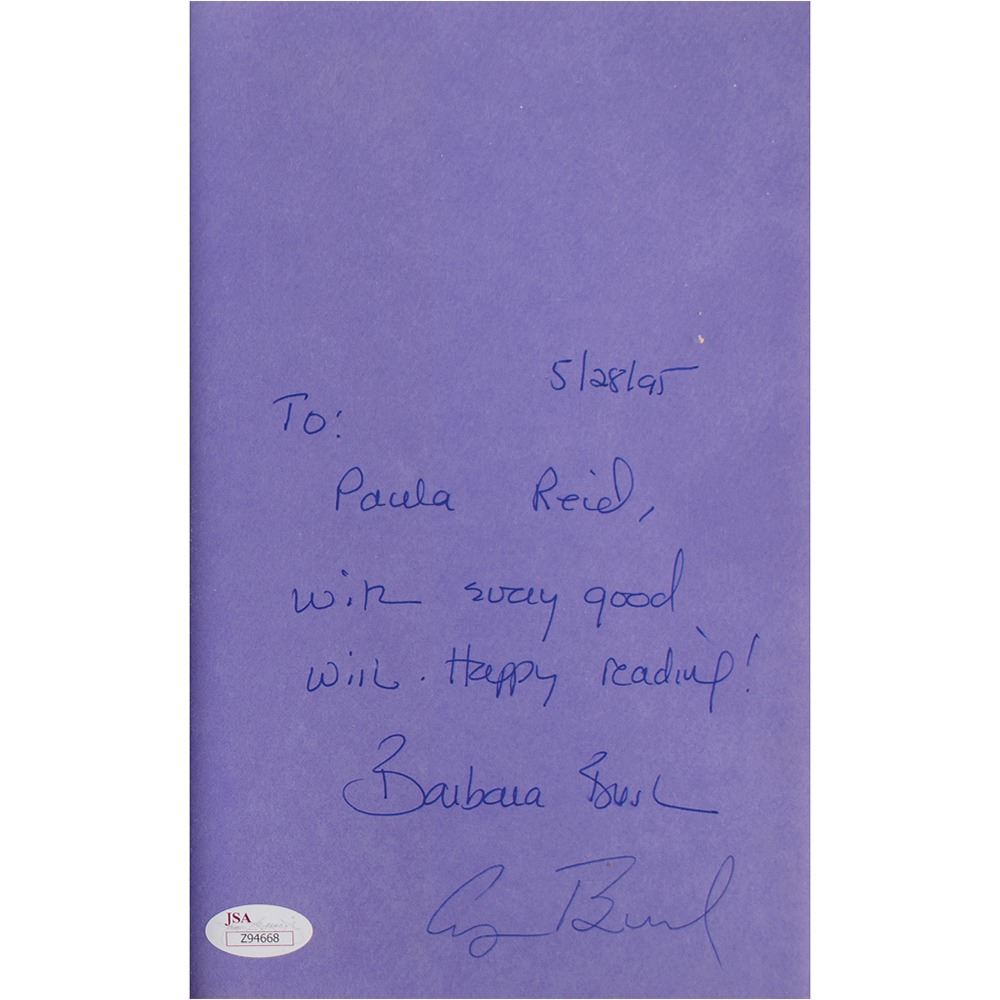 5/28/95
To:
Paula Reid,
with every good
wish. Happy reading!
Barbara Bush
G Bush
JSA
Z94668